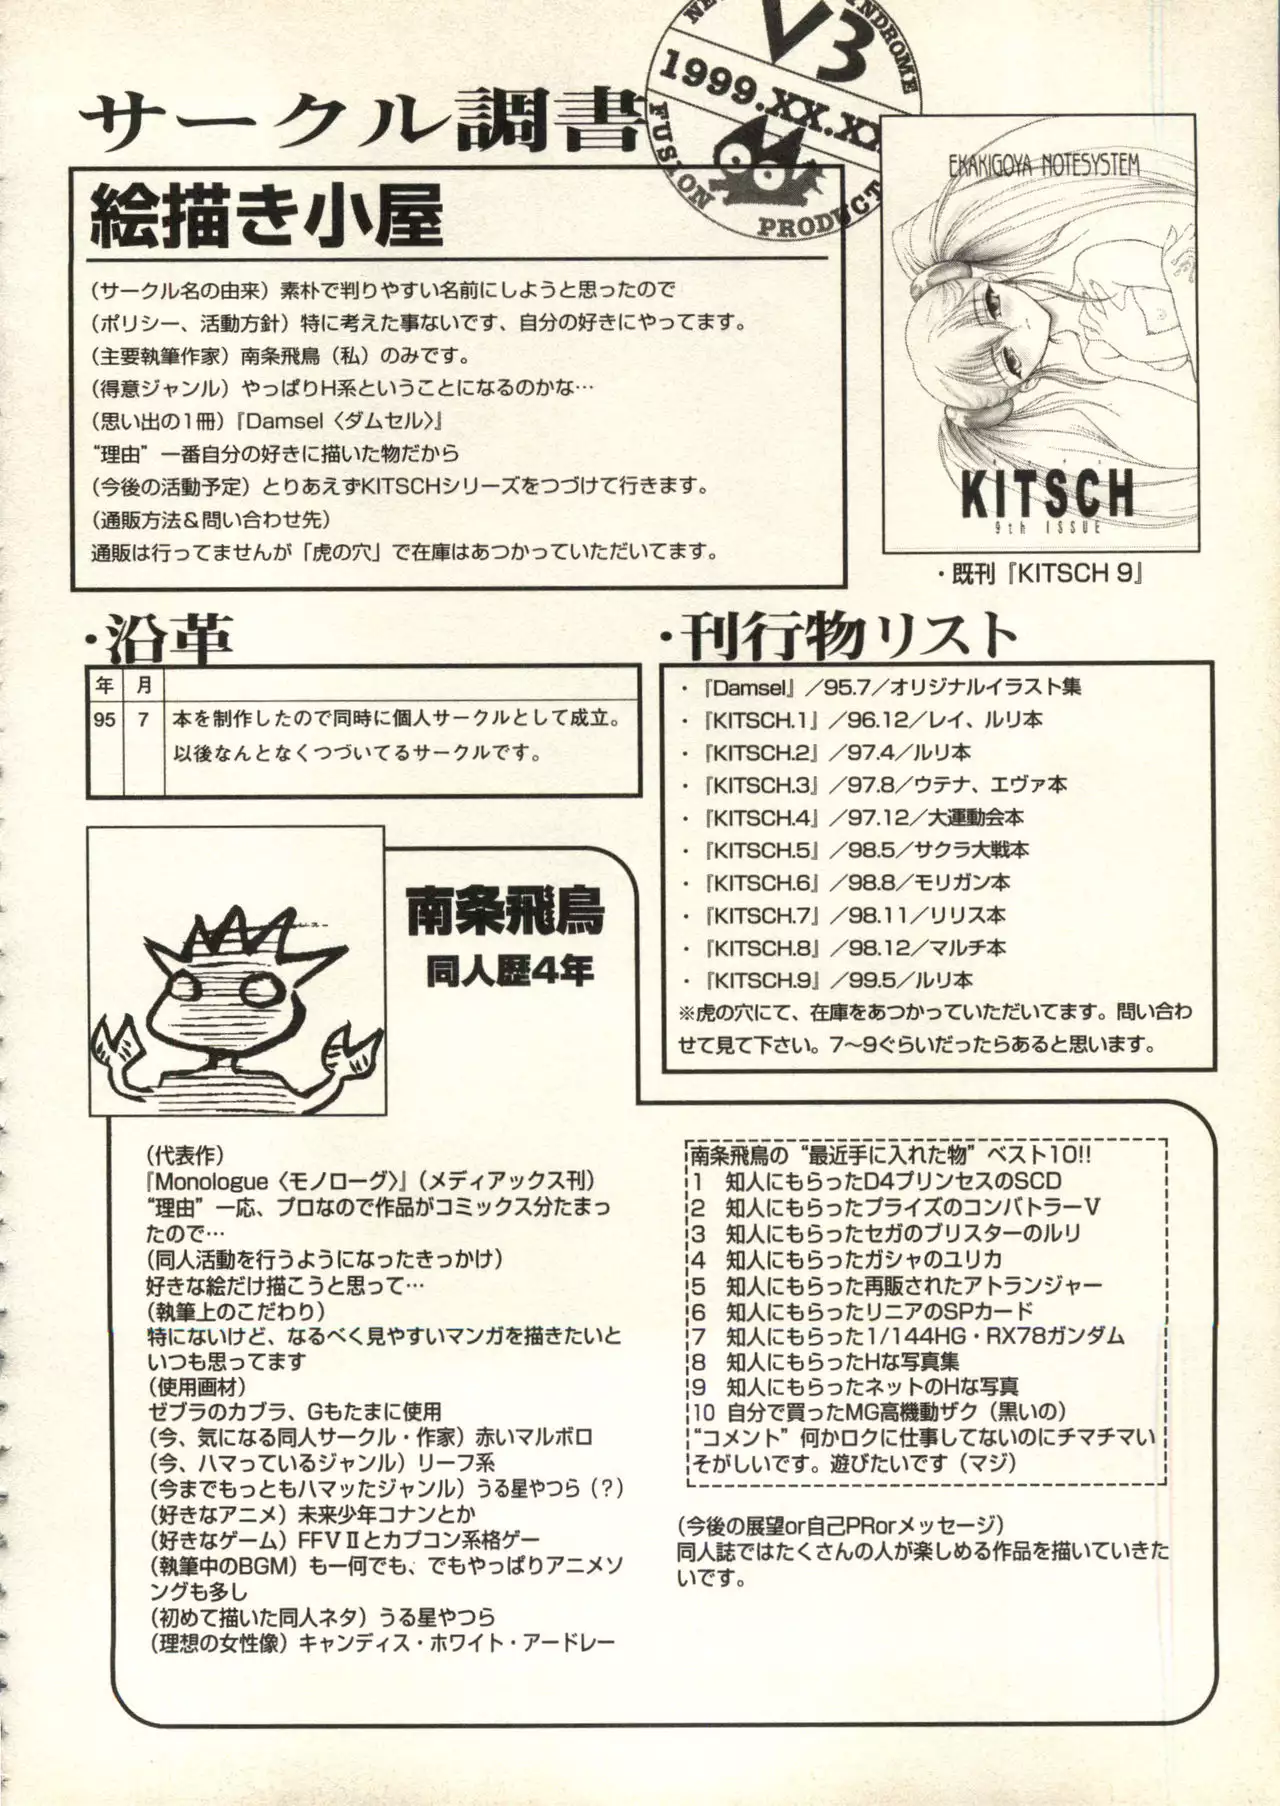 サークル調書
V3
NDROME
1999.XX.XX
FUSION PRODUCT
絵描き小屋
(サークル名の由来) 素朴で判りやすい名前にしようと思ったので
(ポリシー、活動方針) 特に考えた事ないです、自分の好きにやってます。
(主要執筆作家) 南条飛鳥 (私) のみです。
(得意ジャンル) やっぱりH系ということになるのかな…
(思い出の1冊)『Damsel〈ダムセル〉』
“理由” 一番自分の好きに描いた物だから
(今後の活動予定) とりあえずKITSCHシリーズをつづけて行きます。
(通販方法&問い合わせ先)
通販は行ってませんが「虎の穴」で在庫はあつかっていただいてます。
EKAKIGOYA NOTESYSTEM
KITSCH
9th ISSUE
・既刊『KITSCH 9』
・沿革
年 月
95 7 本を制作したので同時に個人サークルとして成立。
以後なんとなくつづいてるサークルです。
・刊行物リスト
・『Damsel』/95.7/オリジナルイラスト集
・『KITSCH.1』/96.12/レイ、ルリ本
・『KITSCH.2』/97.4/ルリ本
・『KITSCH.3』/97.8/ウテナ、エヴァ本
・『KITSCH.4』/97.12/大運動会本
・『KITSCH.5』/98.5/サクラ大戦本
・『KITSCH.6』/98.8/モリガン本
・『KITSCH.7』/98.11/リリス本
・『KITSCH.8』/98.12/マルチ本
・『KITSCH.9』/99.5/ルリ本
※虎の穴にて、在庫をあつかっていただいてます。問い合わ
せて見て下さい。7〜9ぐらいだったらあると思います。
南条飛鳥
同人歴4年
(代表作)
『Monologue〈モノローグ〉』(メディアックス刊)
“理由” 一応、プロなので作品がコミックス分たまっ
たので…
(同人活動を行うようになったきっかけ)
好きな絵だけ描こうと思って…
(執筆上のこだわり)
特にないけど、なるべく見やすいマンガを描きたいと
いつも思ってます
(使用画材)
ゼブラのカブラ、Gもたまに使用
(今、気になる同人サークル・作家) 赤いマルボロ
(今、ハマっているジャンル) リーフ系
(今までもっともハマッたジャンル) うる星やつら (?)
(好きなアニメ) 未来少年コナンとか
(好きなゲーム) FFⅦとカプコン系格ゲー
(執筆中のBGM) も一何でも、でもやっぱりアニメソ
ングも多し
(初めて描いた同人ネタ) うる星やつら
(理想の女性像) キャンディス・ホワイト・アードレー
南条飛鳥の “最近手に入れた物” ベスト10!!
1 知人にもらったD4プリンセスのSCD
2 知人にもらったプライズのコンバトラーV
3 知人にもらったセガのブリスターのルリ
4 知人にもらったガシャのユリカ
5 知人にもらった再販されたアトランジャー
6 知人にもらったリニアのSPカード
7 知人にもらった1/144HG・RX78ガンダム
8 知人にもらったHな写真集
9 知人にもらったネットのHな写真
10 自分で買ったMG高機動ザク (黒いの)
“コメント” 何かロクに仕事してないのにチマチマい
そがしいです。遊びたいです (マジ)
(今後の展望or自己PRorメッセージ)
同人誌ではたくさんの人が楽しめる作品を描いていきた
いです。